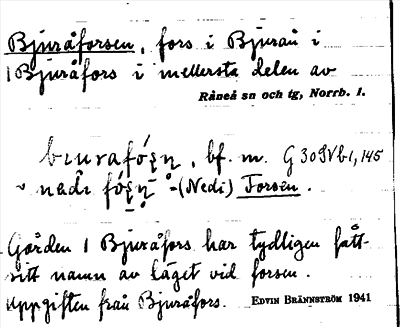 Bjuråforsen, fors i Bjuraå i
1 Bjuråfors i mellersta delen av
Råneå sn och tg, Norrb. l.
bf. m. G 30
(Nedi) Forsen.
Gården 1 Bjuråfors har tydligen fått
sitt namn av läget vid forsen.
Uppgiften från Bjuråfors. EDVIN BRÄNNSTRÖM 1941